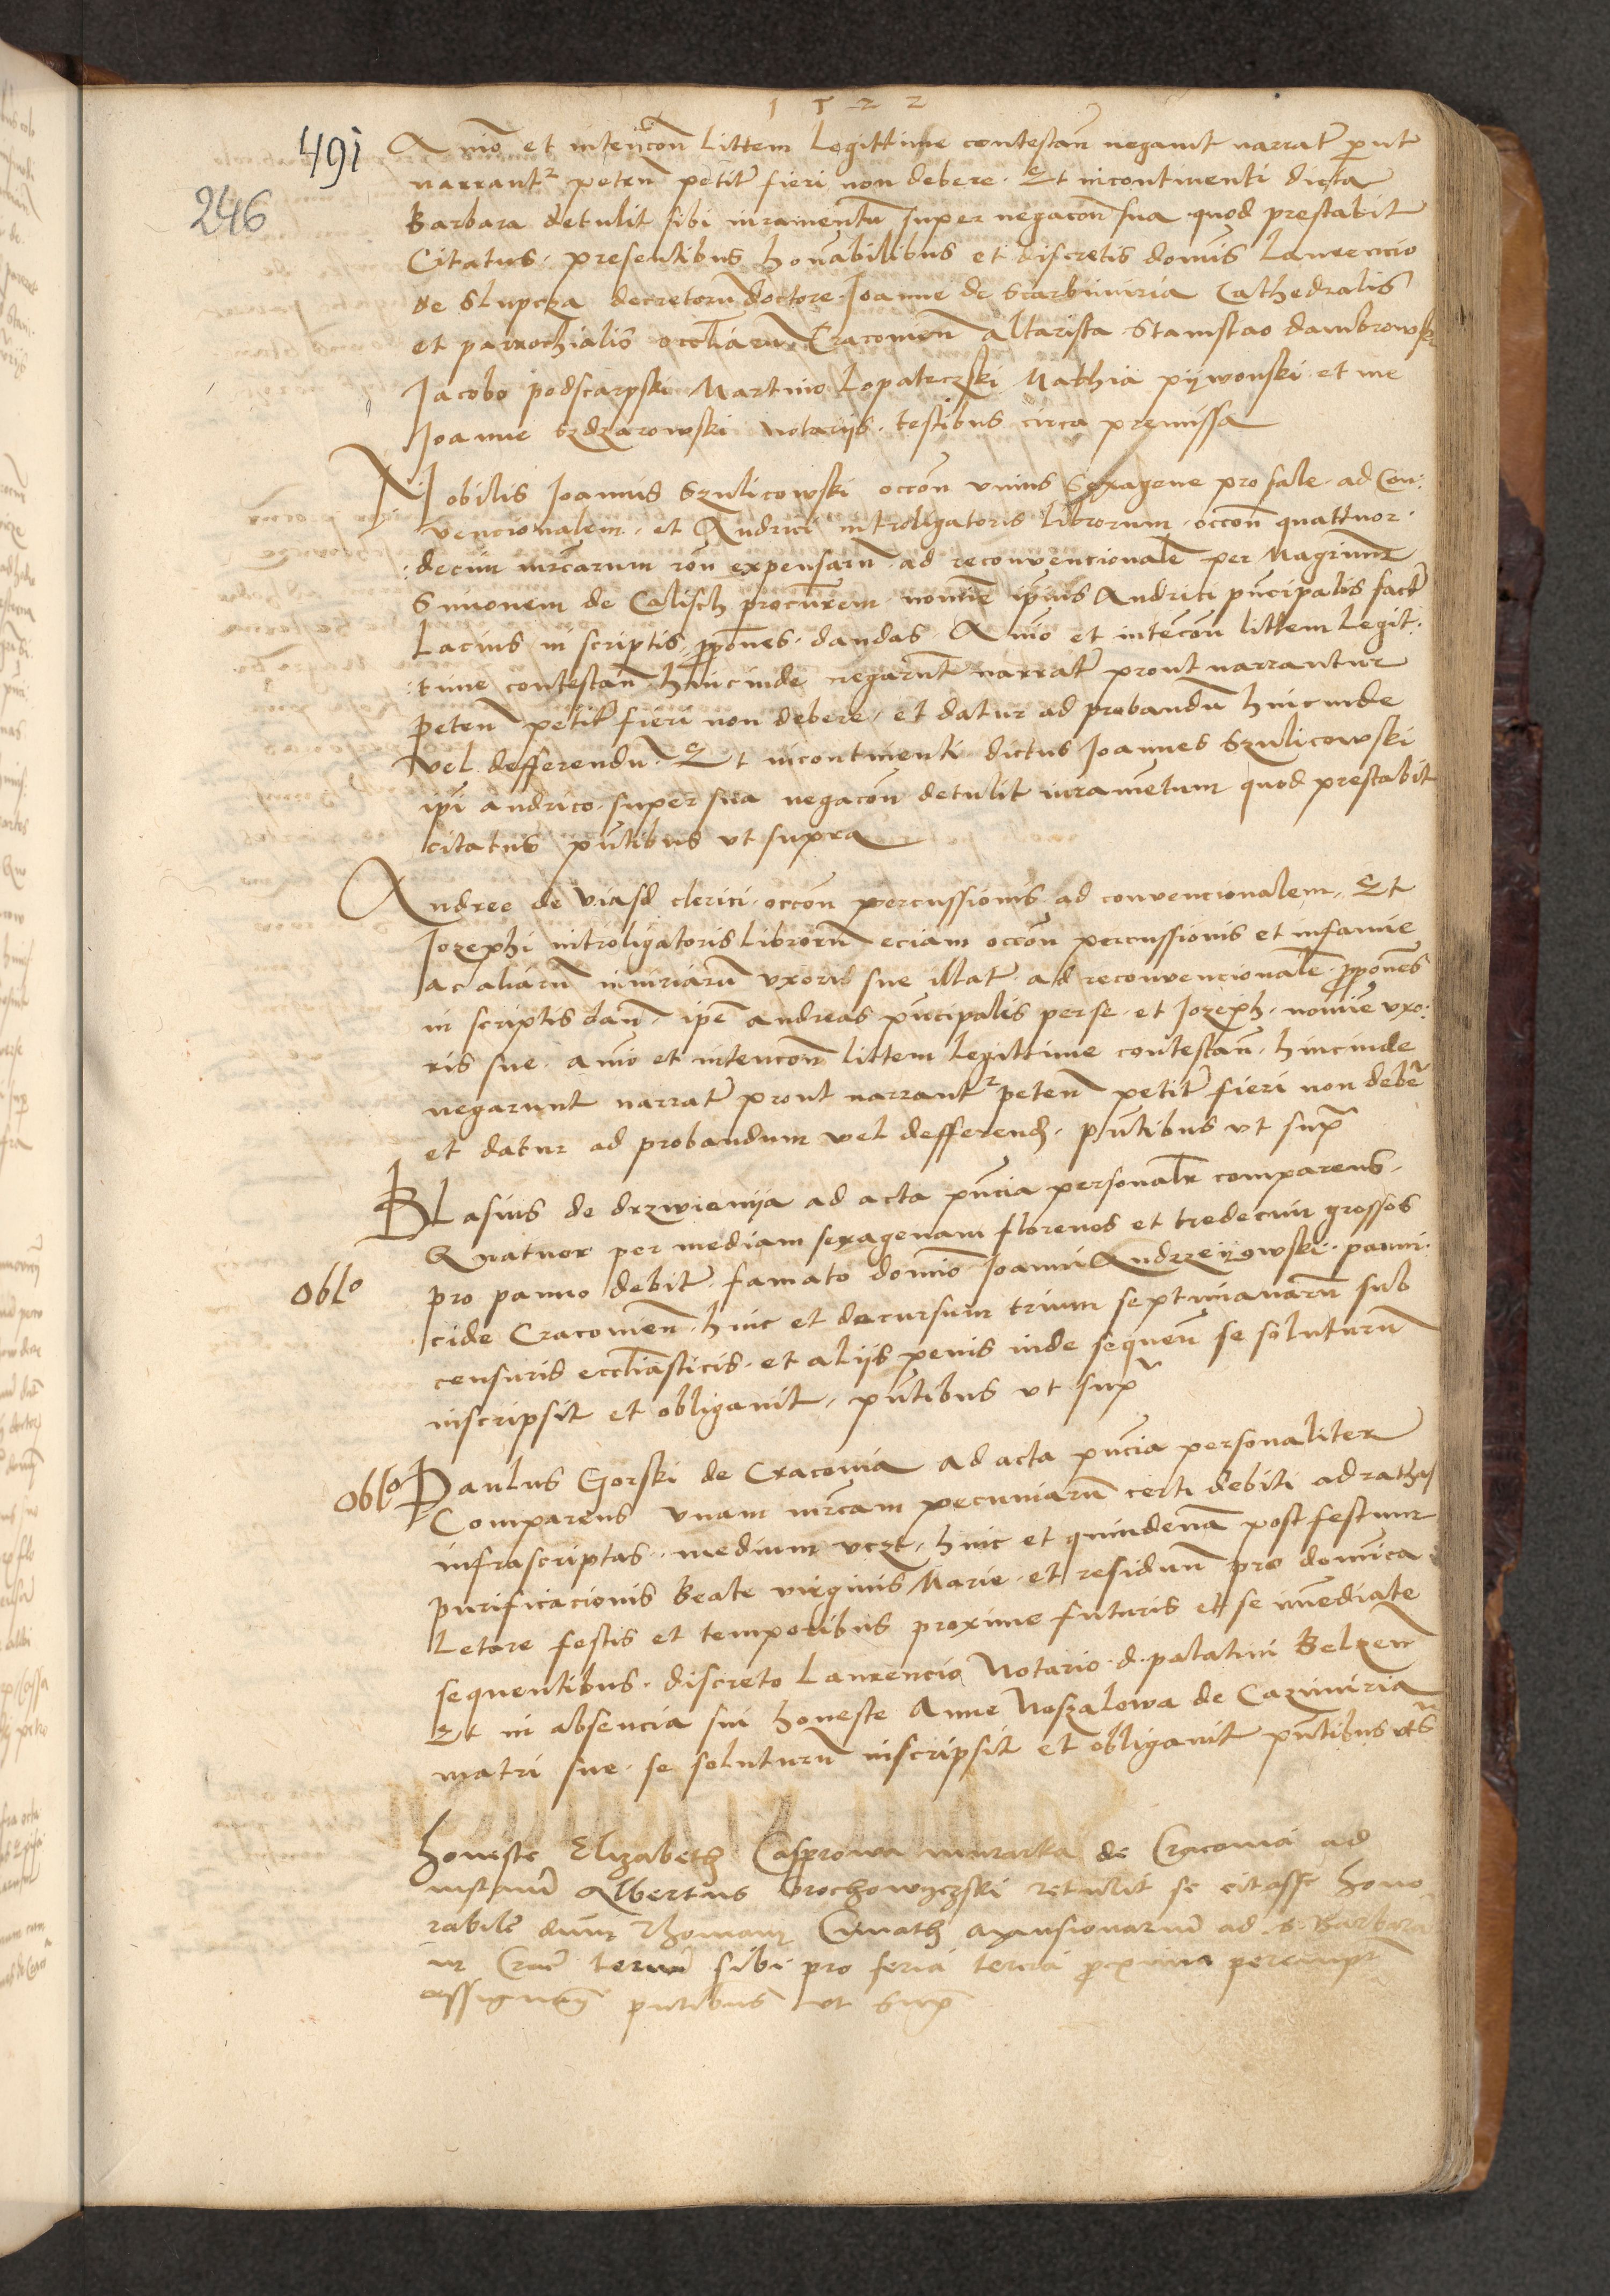 1522
491
246
Anio et intencon littem legittime contestan negavit narrat prout
narrant peten petit fieri non debere. Et incontinenti dicta
Barbara detulit sibi iuramentu super negacon sua quod prestabit
Citatus. presentibus honabilibus et discretis domis Laurencio
de Slupcza decretoru doctore. Joanne de Scarbimiria Cathedralis
et parrochialis eccliaru Cracovien altarista Stanislao dambrowski
Jacobo podscarpski Martino Lopateczski Mathia pijwonski et me
Joanne Szdzarowski Notariis. testibus circa premissa
Nobilis Joannis Szulicowski occon unius Sexagene pro sale. ad Con:
vencionalem. et Andrici introligatoris librorum. occon quattuor.
:decim mrcarum ron expensaru ad reconvencionale per Magrum
Simonem de Calisch procurem. nomie ipius Andrici pncipalis fact
Lacius in scriptis. ppones. dandas. Anio et intencon littem legit:
:time contestan hincinde negarunt narrat prout narrantur
peten petit fieri non debere, et datur ad probandu hincinde
vel defferendu. Et incontinenti dictus Joannes Szulicowski
ipi andrico super sua negacon detulit iurametum quod prestabit
citatus pntibus ut supra
Andree de Viasd clerici. occon percussionis ad convencionalem. Et
Jozephi introligatoris libroru eciam occon percussionis et infamie
ac aliaru iniuriaru uxori sue illat. ad reconvencionale. ppones
in scriptis dan. ipe andreas pncipalis per se. et Jozeph. nomie uxo:
ris sue. anio et intencon littem legittime contestan. hincinde
negarunt narrat prout narrant peten petit fieri non debe
et datur ad probandum vel defferend. pntibus ut sup
Blasius de drzwienija ad acta pncia personalr comparens.
Quatuor per mediam sexagenam florenos et tredecim grossos
Oblo
pro panno debit. famato domio Joanni Andrzeijowski. panni:
cide Cracovien. hinc et decursum trium septimanaru sub
censuris eccliasticis. et aliis penis inde sequen se soluturu
inscripsit et obligavit. pntibus ut sup
Oblo
Paulus Gorski de Cracovia ad acta pncia personaliter
Comparens unam mrcam pecuniaru certi debiti ad rathas
infrascriptas. medium vczt. hinc et quindena post festum
purificacionis Beate virginis Marie. et residuu pro domica
Letare festis et temporibus proxime futuris et se imediate
sequentibus. discreto Laurencio Notario. d. palatini Belzen
Et in absencia sui honeste Anne Noszalowa de Cazimiria
matri sue. se soluturu inscripsit et obligavit pntibus uts
honeste Elizabeth Casprowa murarka de Cracovia ad
instanci Albertus Grochowyczski retulit se citasse hono
rabile dnum Thomam mansionariu ad s. Barbara
in Crac termin sibi pro feria tercia proxima perempt
assignan pntibus ut sup